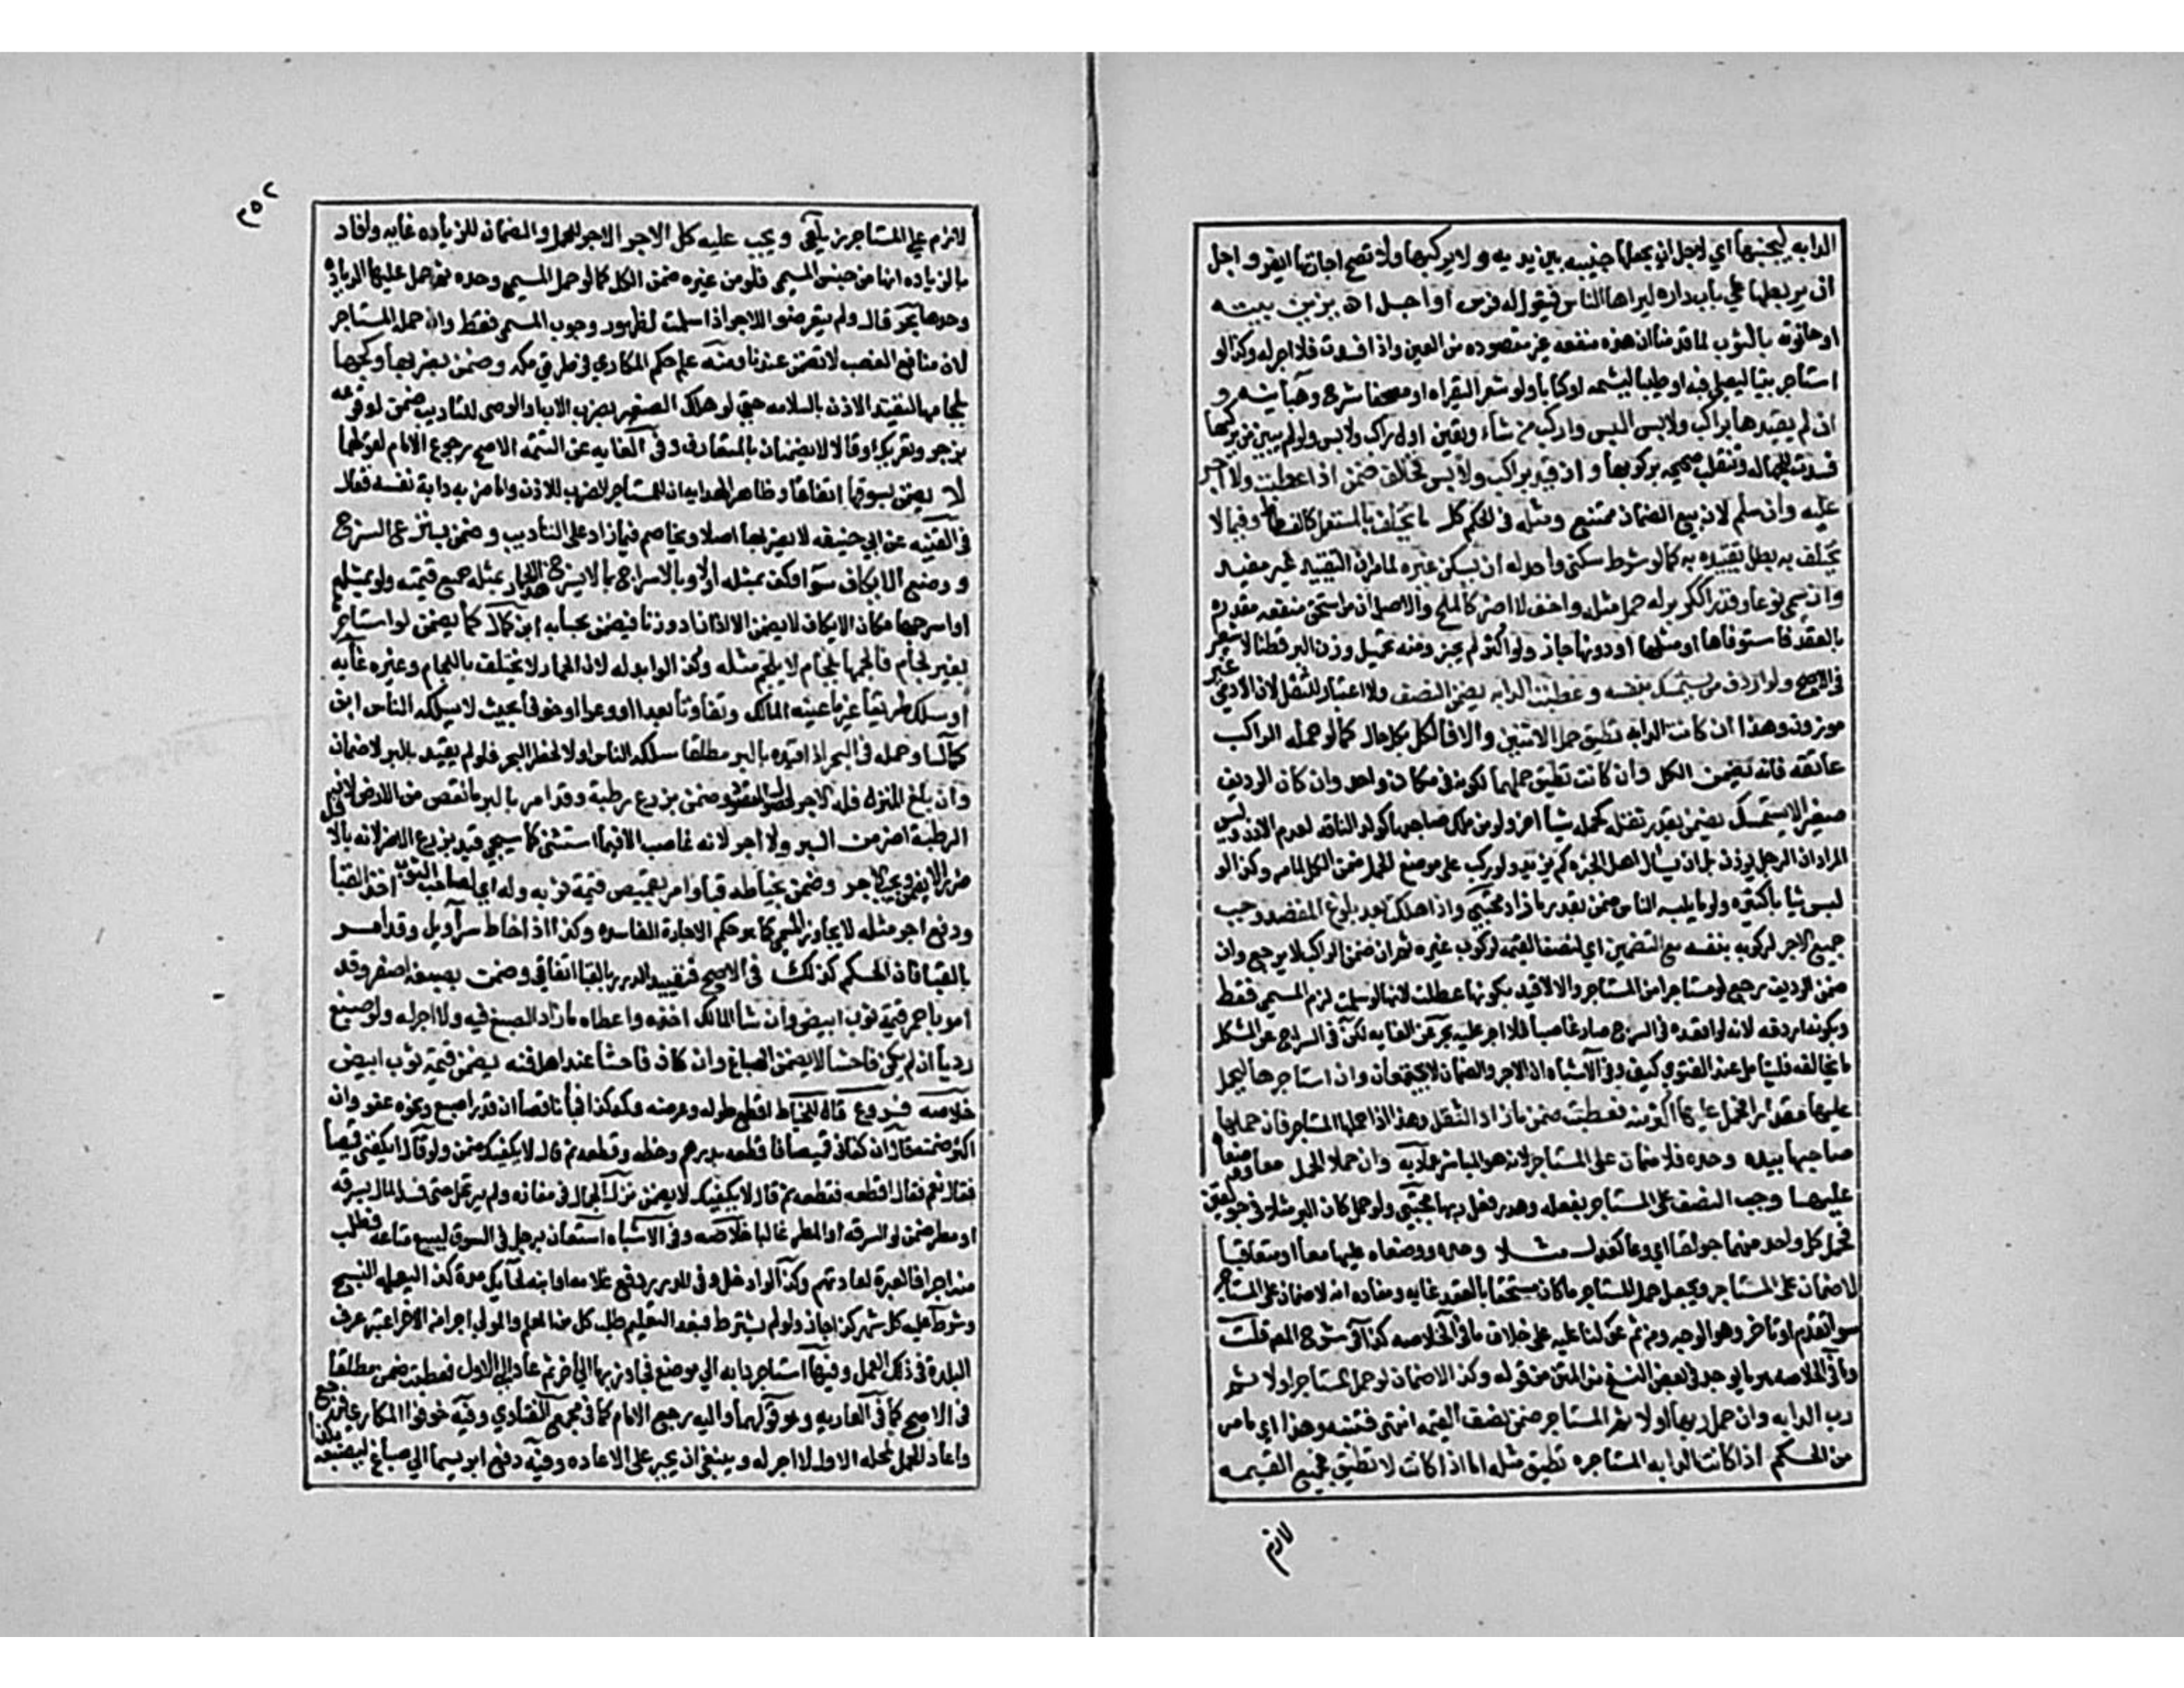 الدابه ليجنبها اي لاجل ان يجعلها جنيبه بين يديه ولا يركبها ولا تصح اجارتها ايضو واجل
ان يربطها علي باب داره ليراها الناس فيقولو له فرس او اجل ان يزين بيته
او حانوته بالثوب لما قدمنا ان هذه منفعه غير مقصوده من العين واذا فسدت فلا اجر له وكذا لو
استاجر بيتا ليصلي فيه او طيبا ليشمه او كتابا ولو شعر اليقراه او مصحفا شرح وهبانيه و
ان لم يقيدها براكب ولابس البس واركب من شاء وتعين اول راكب ولابس ولو لم يبين من يركبها
فسدت للجهاله وتنقلب صحيحه بركوبها وان قيد براكب ولابس فخالف ضمن اذا عطبت ولا اجر
عليه وان سلم لانه مع الضمان ممتنع ومثله في الحكم كل ما يختلف بالمستعمل كالفسطاط وفيما لا
يختلف به بطل تقييده به كما لو شرط سكني واحد له ان يسكن غيره لما مر ان التقييد غير مفيد
وان سمي نوعا وقدرا ككر بر له حمل مثله واخف لا اضر كالملح والاصل ان من استحق منفعه مقدره
بالعقد فاستوفاها او مثلها او دونها جاز ولو اكثر لم يجز ومنه تحميل وزن البر قطنا لا شعير
في الاصح ولو اردف من يستمسك بنفسه وعطبت الدابه يضمن النصف ولا اعتبار للثقل لان الادمي غير
موزون وهذا ان كانت الدابه تطيق حمل الاثنين والا فالكل بكل حال كما لو حمله الراكب
عاتقه فانه يضمن الكل وان كانت تطيق حملهما لكونه في مكان واحد وان كان الرديف
صغير الا يستمسك يضمن بقدر ثقله كحمله شيا اخر ولو من ملك صاحبها كولد الناقه لعدم الاذن وليس
المراد ان الرجل يوزن بل ان يسال اهل الخبره كم يزيد ولو ركب علي موضع الحمل ضمن الكل لما مر وكذا لو
لبس ثيابا كثيره ولو ما يلبسه الناس ضمن بقدر ما زاد مجتبي واذا هلكت بعد بلوغ المقصد وجب
جميع الاجر لركوبه بنفسه مع التضمين اي لنصف القيمه لركوب غيره ثم ان ضمن الراكب لا يرجع وان
ضمن الرديف رجع لو مستاجرا من المستاجر والا لا قيد بكونها عطبت لانها لو سلمت لزم المسمي فقط
وبكونه اردفه لانه لو اقعده في السرج صار غاصبا فلا اجر عليه بحر عن الغايه لكن في السراج عن المشكل
ما يخالفه فليتامل عند الفتوي كيف وفي الاشباه ان الاجر والضمان لا يجتمعان وان استاجرها ليحمل
عليها مقدارا فحمل عليها اكثر منه فعطبت ضمن ما زاد الثقل وهذا اذا حملها المستاجر فان حملها
صاحبها بيده وحده فلا ضمان علي المستاجر لانه هو المباشر عماديه وان حملا الحمل معا ووضعاه
عليها وجب النصف علي المستاجر بفعله وهدر فعل ربها مجتبي ولو حمل كان البر مثلا في جولقين
فحمل كل واحد منهما جولقا اي وعا كعدل مثلا وحده ووضعاه عليها معا او متعاقبا
لا ضمان علي المستاجر ويجعل حمل المستاجر ما كان مستحقا بالعقد غايه ومفاده انه لا ضمان علي المستاجر
سوا تقدم او تاخر وهو الوجه ومن ثم عولنا عليه علي خلاف ما في الخلاصه كذا في شرح المص قلت
وما في الخلاصه هو ما يوجد في بعض النسخ من المتن من قوله وكذا لا ضمان لو حمل المستاجر اولا ثم
رب الدابه وان حمل ربها اولا ثم المستاجر ضمن نصف القيمه انتهي فتنبه وهذا اي ما مر
من الحكم اذا كانت الدابه المستاجره تطيق مثله اما اذا كانت لا تطيق فجميع القيمه
لازم
٢٥٢
لازم علي المستاجر زيلعي ويجب عليه كل الاجر الاجر للحمل والضمان للزياده غايه وافاد
بالزياده انها من جنس المسمي فلو من غيره ضمن الكل كما لو حمل المسمي وحده ثم حمل عليها الزياده
وحدها بحر قال ولم يتعرضوا للاجر اذا سلمت لظهور وجوب المسمي فقط وان حمله المستاجر
لان منافع الغصب لا تضمن عندنا ومنه علم حكم المكاري في طريق مكه وضمن بضربها وكبحها
بلجامها لتقييد الاذن بالسلامه حتي لو هلك الصغير بضرب الاب او الوصي للتاديب ضمن لوقوعه
بزجر وتعريك وقالا لا يضمنان بالمتعارف وفي الغايه عن التتمه الاصح رجوع الامام لقولهما
لا يضمن بسوقها اتفاقا وظاهر الهدايه ان للمستاجر الضرب للاذن واما ضربه دابة نفسه فقال
في القنيه عن ابي حنيفه لا يضربها اصلا ويخاصم فيما زاد علي التاديب وضمن بنزع السرج
ووضع الايكاف سوا وكف بمثله او لا وبالاسراج بما لا يسرج هذا الحمار بمثله جميع قيمته ولو بمثله
او اسرجها مكان الايكاف لا يضمن الا اذا زاد وزنا فيضمن بحسابه ابن كمال كما يضمن لو استاجرها
بغير لجام فالجمها بلجام لا يلجم مثله وكذا لو ابدله لان الحمار لا يختلف باللجام وغيره غايه
او سلك طريقا غير ما عينه المالك وتفاوتا بعدا او وعرا او خوفا بحيث لا يسلكه الناس ابن
كمال او حمله في البحر اذا قيده بالبر مطلقا سلكه الناس اولا لخطر البحر فلو لم يقيد بالبر لا ضمان
وان بلغ المنزل فله الاجر لحصول المقصود وضمن بزرع رطبة وقد امر بالبر ما نقص من الارض لان
الرطبة اضر من البر ولا اجر لانه غاصب الا فيما استثني كما سيجي قيد بزرع الاضر لانه بالا
ضررا لا يضمن ويجب الاجر وضمن بخياطه قبا وامر بقميص قيمة ثوبه وله اي لصاحب الثوب اخذ القبا
ودفع اجر مثله لا يجاوز المسمي كما هو حكم الاجارة الفاسده وكذا اذا خاط سراويل وقد امر
بالقبا فان الحكم كذلك في الاصح فتقييد الدرر بالقبا اتفاقي وضمن بصبغه اصفر وقد
امر باحمر قيمة ثوب ابيض وان شا المالك اخذه واعطاه ما زاد الصبغ فيه ولا اجر له ولو صبغ
رديا ان لم يكن فاحشا لا يضمن الصباغ وان كان فاحشا عند اهل فنه يضمن قيمة ثوب ابيض
خلاصه فروع قال للخياط اقطع طوله وعرضه وكمه كذا فجا ناقصا ان قدر اصبع ونحوه عفو وان
اكثر ضمنه قال ان كفاني قميصا فاقطعه بدرهم وخطه فقطعه ثم قال لا يكفيك ضمن ولو قال ايكفيني قميصا
فقال نعم فقال اقطعه فقطعه ثم قال لا يكفيك لا يضمن نزل الجمال في مفازه ولم يرتحل حتي فسد المال بسرقه
او مطر ضمن لو السرقه او المطر غالبا خلاصه وفي الاشباه استعان برجل في السوق ليبيع متاعه فطلب
منه اجرا فالعبرة لعادتهم وكذا لو ادخل وفي الدرر دفع غلامه او ابنه لحايك مدة كذا ليعلمه النسج
وشرط عليه كل شهر كذا جاز ولو لم يشترط فبعد التعليم طلب كل من المعلم والمولي اجرا من الاخر اعتبر عرف
البلدة في ذلك العمل وفيها استاجر دابه الي موضع فجاوز بها الي اخر ثم عاد الي الاول فعطبت ضمن مطلقا
في الاصح كما في العماديه وهو قولهما واليه رجع الامام كما في مجمع الفتاوي وفيه خوفوا المكاري فرجع
واعاد الحمل لمحله الاول لا اجر له وينبغي ان يجبر علي الاعاده وفيه دفع ابريسما الي صباغ ليصبغه